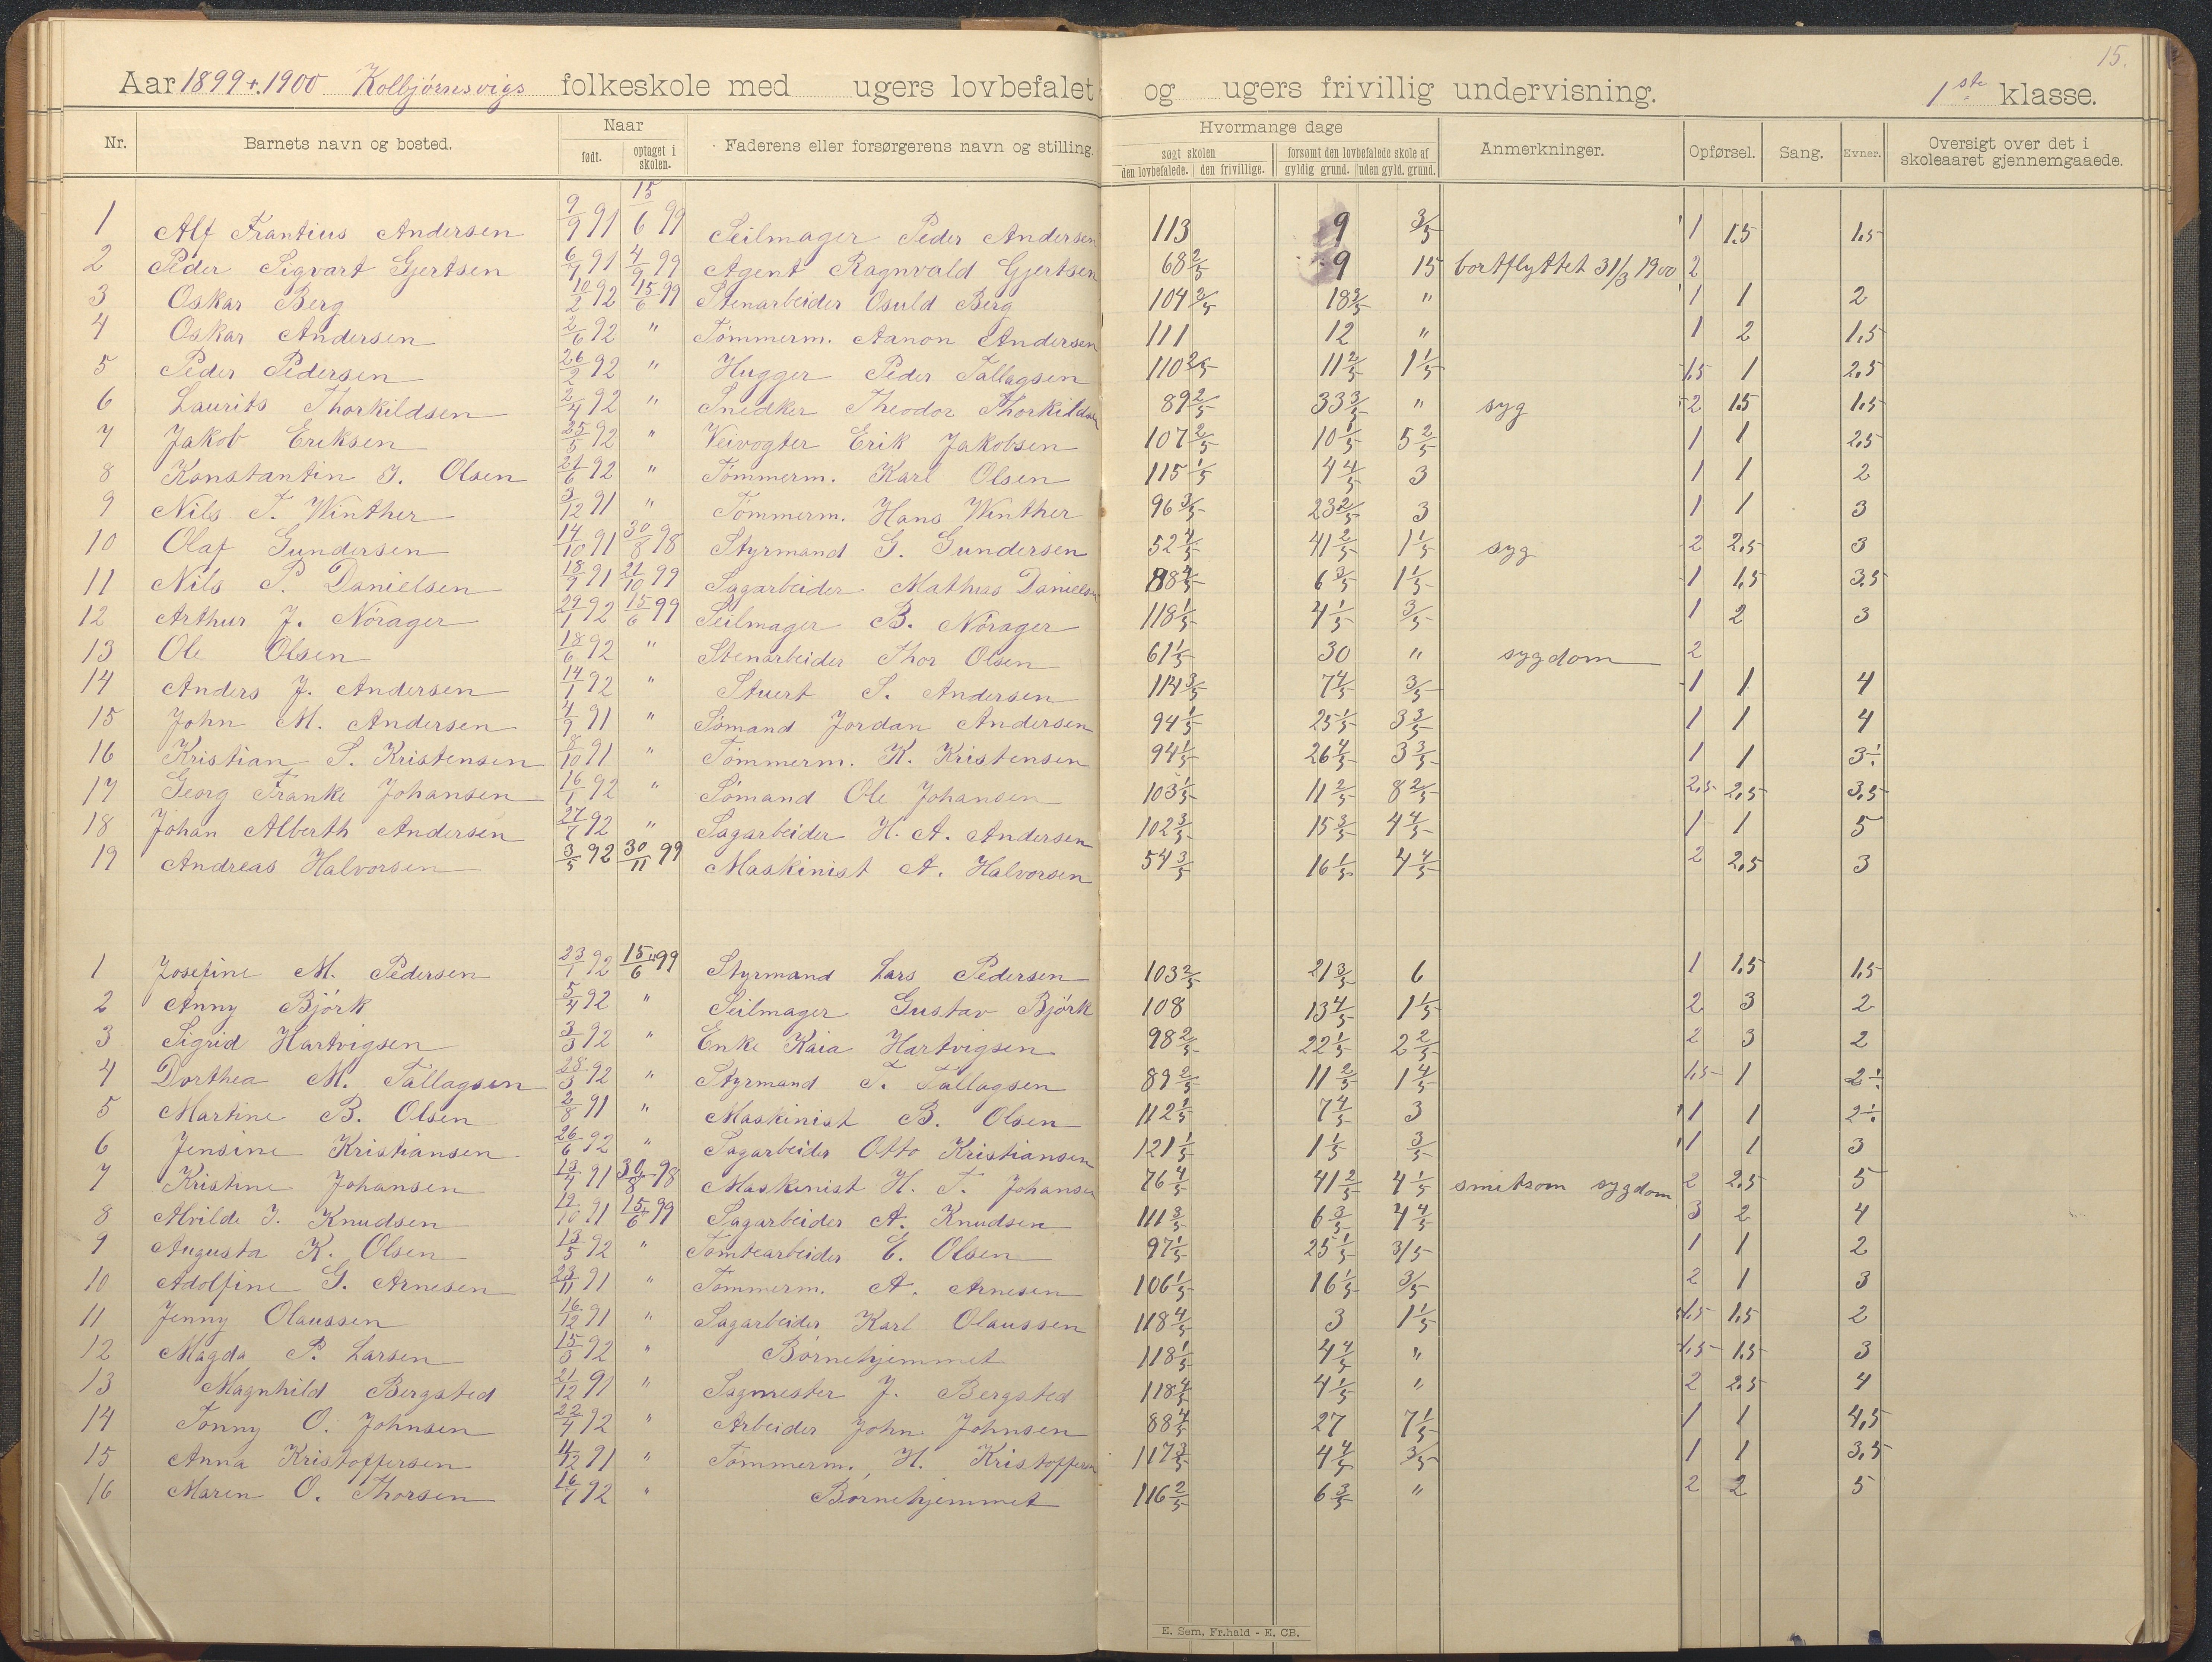 15.
Aar 1899 + 1900 Kolbjørnsvigs folkeskole med ugers lovbefalet og ugers frivillig undervisning. 1ste klasse.
Nr. Barnets navn og bosted. Naar født. optaget i skolen. Faderens eller forsørgerens navn og stilling. Hvormange dage søgt skolen den lovbefalede. den frivillige. forsømt den lovbefalede skole af gyldig grund. uden gyld. grund. Anmerkninger. Opførsel. Sang. Evner. Oversigt over det i skoleaaret gjennemgaaede.
1 Alf Frantius Andersen 9/9 91 15/6 99 Seilmager Peder Andersen 113 9 3/5 1 1.5 1.5
2 Peder Sigvart Gjertsen 6/7 91 4/9 99 Agent Ragnvald Gjertsen 68 2/5 9 15 bortflyttet 31/3 1900 2
3 Oskar Berg 10/2 92 15/6 99 Stenarbeider Osuld Berg 104 2/5 18 3/5 " 1 1 2
4 Oskar Andersen 2/6 92 " Tømmerm. Aanon Andersen 111 12 " 1 2 1.5
5 Peder Pedersen 26/2 92 " Hugger Peder Tallagsen 110 2/5 11 2/5 1 1/5 1.5 1 2.5
6 Laurits Thorkildsen 2/4 92 " Snedker Theodor Thorkildsen 89 2/5 33 3/5 " syg 2 1.5 1.5
7 Jakob Eriksen 25/5 92 " Veivogter Erik Jakobsen 107 2/5 10 1/5 5 2/5 1 1 2.5
8 Konstantin J. Olsen 21/6 92 " Tømmerm. Karl Olsen 115 1/5 4 4/5 3 1 1 2
9 Nils T. Winther 3/12 91 " Tømmerm. Hans Winther 96 3/5 23 2/5 3 1 1 3
10 Olaf Gundersen 14/10 91 30/8 98 Styrmand G. Gundersen 52 4/5 41 2/5 1 1/5 syg 2 2.5 3
11 Nils P. Danielsen 18/9 91 21/10 99 Sagarbeider Mathias Danielsen 88 4/5 6 3/5 1 1/5 1 1.5 3.5
12 Arthur J. Nörager 29/1 92 15/6 99 Seilmager B. Nörager 118 1/5 4 1/5 3/5 1 2 3
13 Ole Olsen 18/6 92 " Stenarbeider Thor Olsen 61 1/5 30 " sygdom 2
14 Anders J. Andersen 14/1 92 " Stuert S. Andersen 114 3/5 7 4/5 3/5 1 1 4
15 John M. Andersen 4/9 91 " Sømand Jordan Andersen 94 1/5 25 1/5 3 3/5 1 1 4
16 Kristian S. Kristensen 8/10 91 " Tømmerm. K. Kristensen 94 1/5 26 4/5 3 3/5 1 1 3÷
17 Georg Franke Johansen 16/1 92 " Sømand Ole Johansen 103 1/5 11 2/5 8 2/5 2.5 2.5 3.5
18 Johan Alberth Andersen 27/7 92 " Sagarbeider H. A. Andersen 102 3/5 15 3/5 4 4/5 1 1 5
19 Andreas Halvorsen 3/5 92 30/11 99 Maskinist A. Halvorsen 54 3/5 16 1/5 4 4/5 2 2.5 3
1 Josefine M. Pedersen 23/1 92 15/6 99 Styrmand Lars Pedersen 103 2/5 21 3/5 6 1 1.5 1.5
2 Anny Björk 5/4 92 " Seilmager Gustav Björk 108 13 4/5 1 1/5 2 3 2
3 Sigrid Hartvigsen 3/3 92 " Enke Kaia Hartvigsen 98 2/5 22 1/5 2 2/5 2 3 2
4 Dorthea M. Tallagsen 28/3 92 " Styrmand T. Tallagsen 89 2/5 11 2/5 1 4/5 1.5 1 2÷
5 Martine B. Olsen 2/8 91 " Maskinist B. Olsen 112 1/5 7 4/5 3 1 1 2÷
6 Jensine Kristiansen 26/6 92 " Sagarbeider Otto Kristiansen 121 1/5 1 1/5 3/5 1 1 3
7 Kristine Johansen 13/7 91 30/8 98 Maskinist H. T. Johansen 76 4/5 41 2/5 4 1/5 smitsom sygdom 2 2.5 5
8 Alvilde J. Knudsen 12/10 91 15/6 99 Sagarbeider A. Knudsen 111 3/5 6 3/5 4 4/5 3 2 4
9 Augusta K. Olsen 13/5 92 " Tomtearbeider E. Olsen 97 1/5 25 1/5 3/5 1 1 2
10 Adolfine G. Arnesen 23/11 91 " Tømmerm. A. Arnesen 106 1/5 16 1/5 3/5 2 1 3
11 Jenny Olaussen 16/12 91 " Sagarbeider Karl Olaussen 118 4/5 3 1 1/5 1.5 1.5 2
12 Magda P. Larsen 15/3 92 " Børnehjemmet 118 1/5 4 4/5 " 1.5 1.5 3
13 Magnhild Bergsted 21/12 91 " Sagmester J. Bergsted 118 4/5 4 1/5 " 2 2.5 4
14 Tonny O. Johnsen 22/4 92 " Arbeider John Johnsen 88 4/5 27 7 1/5 1 1 4.5
15 Anna Kristoffersen 4/12 91 " Tømmerm. H. Kristoffersen 117 3/5 4 4/5 3/5 1 1 3.5
16 Maren O. Thorsen 16/7 92 " Børnehjemmet 116 2/5 6 3/5 " 2 2 5
E. Sem, Fr.hald - E. CB.